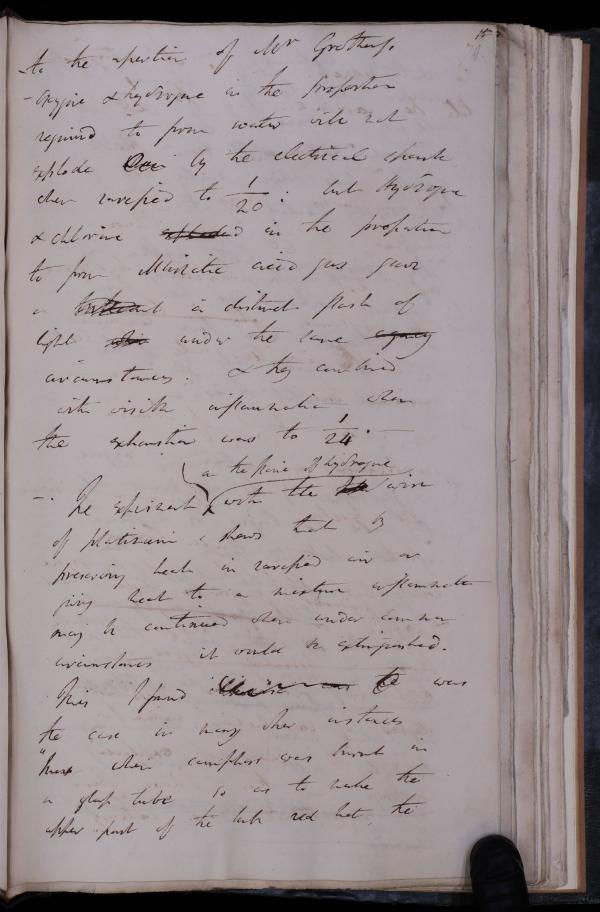 15
79
to the assertion of Mr Grotthus.
– Oxygene & hydrogene in the proportion
required to form water will not
explode by the electrical spark
when rarefied to 1/20: but Hydrogene
& chlorine exploded in the proportion
to form Muriatic acid gas gave
a brilliant a distinct flash of
light under the same agency
circumstances. & they combined
with visible inflammation when
the exhaustion was to 1/24. –
on the flame of hydrogene
–. The experiment with the wire
of platinum shews that by
preserving heat in rarefied air or
giving heat to a mixture inflammation
may be continued when under common
circumstances it would be extinguished.
This I found was the was
the case in many other instances
thus when camphor was burnt in
a glass tube so as to make the
upper part of the tube red hot, the